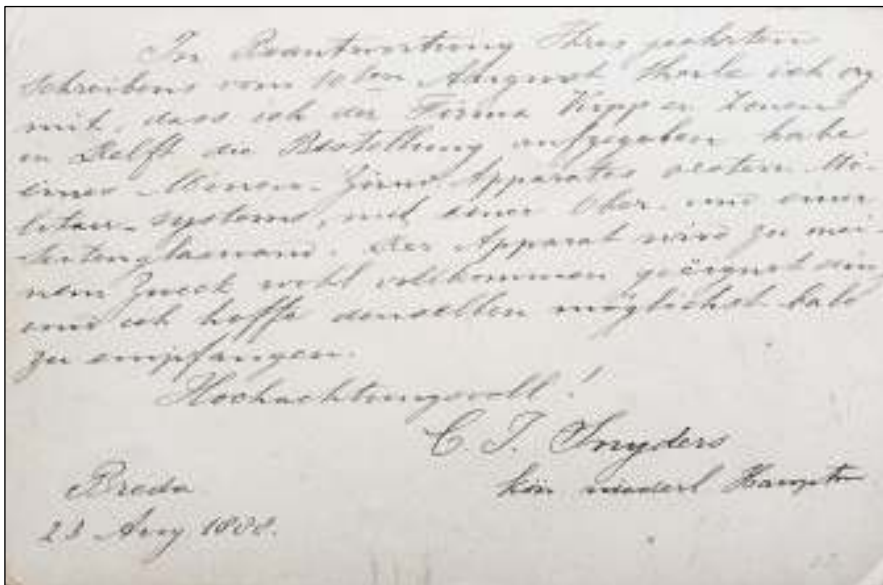 In Beantwortung Ihres geehrten
Schreibens vom 10ten August theile ich
mit, dass ich der Firma Kipp en Zonen
in Delft die Bestellung aufgegeben habe
eines Minen-Zünd-Apparates oesterr. Mi-
litair-systems, mit einer Ober- und einer
Seitenglaswand. Der Apparat wird zu mei-
nem Zweck wohl vollkommen geëignet sein
und ich hoffe denselben möglichst bald
zu empfangen.
Hochachtungsvoll!
C. J. Snyders
kön niederl Hauptm
Breda
23 Aug 1888.